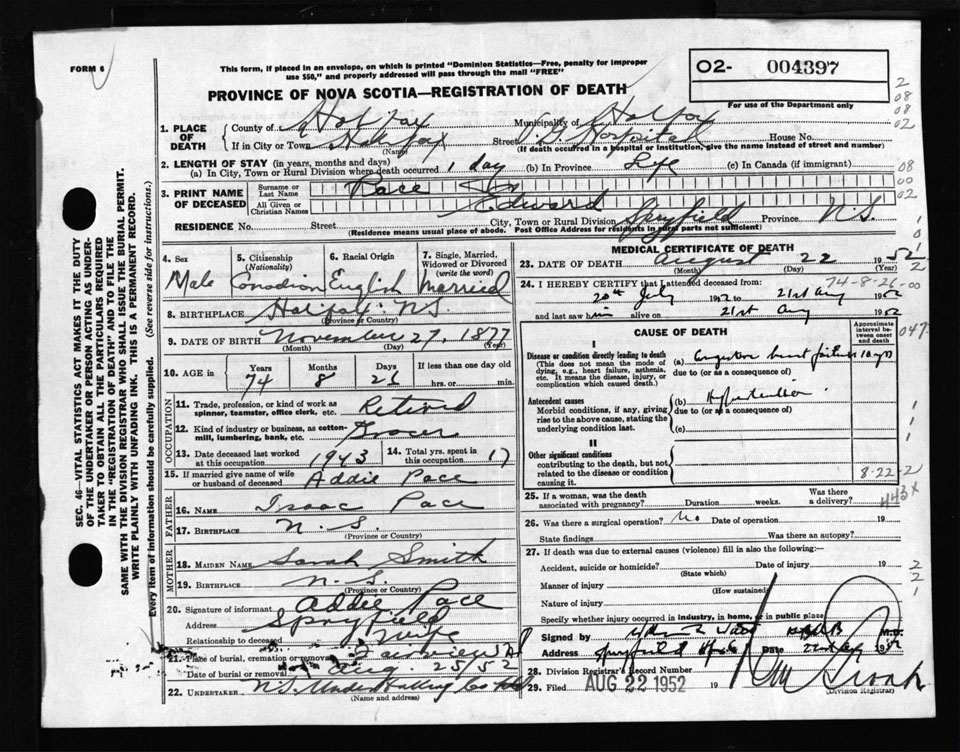 FORM 6
This form, if placed in an envelope, on which is printed "Dominion Statistics—Free, penalty for improper
use $50," and properly addressed will pass through the mail "FREE"
O2- 004397
For use of the Department only
PROVINCE OF NOVA SCOTIA—REGISTRATION OF DEATH
2
08
08
02
1. PLACE OF DEATH
County of Halifax Municipality of Halifax
If in City or Town Halifax Street V.G. Hospital House No.
(Name) (If death occurred in a hospital or institution, give the name instead of street and number)
2. LENGTH OF STAY (in years, months and days)
(a) In City, Town or Rural Division where death occurred 1 day (b) In Province Life (c) In Canada (if immigrant)
08
00
02
3. PRINT NAME OF DECEASED
Surname or Last Name Pace
All Given or Christian Names Edward
RESIDENCE No. Street City, Town or Rural Division Spryfield Province N.S.
(Residence means usual place of abode. Post Office Address for residents in rural parts not sufficient)
4. Sex Male
5. Citizenship (Nationality) Canadian
6. Racial Origin English
7. Single, Married, Widowed or Divorced (write the word) Married
8. BIRTHPLACE Halifax N.S.
(Province or Country)
9. DATE OF BIRTH November 27, 1877
(Month) (Day) (Year)
10. AGE in Years Months Days If less than one day
74 8 26 hrs. or min.
OCCUPATION
11. Trade, profession, or kind of work as spinner, teamster, office clerk, etc. Retired
12. Kind of industry or business, as cotton-mill, lumbering, bank, etc. Grocer
13. Date deceased last worked at this occupation 1943
14. Total yrs. spent in this occupation 17
15. If married give name of wife or husband of deceased Addie Pace
FATHER
16. NAME Isaac Pace
17. BIRTHPLACE N.S.
(Province or Country)
MOTHER
18. MAIDEN NAME Sarah Smith
19. BIRTHPLACE N.S.
(Province or Country)
20. Signature of informant Addie Pace
Address Spryfield
Relationship to deceased Wife
21. Place of burial, cremation or removal Fairview
Date of burial or removal Aug. 25/52
22. UNDERTAKER N.S. Undertaking Co
(Name and address)
MEDICAL CERTIFICATE OF DEATH
23. DATE OF DEATH August 22 1952
(Month) (Day) (Year)
74-8-26-00
24. I HEREBY CERTIFY that I attended deceased from:
20th July 1952 to 21st Aug 1952
and last saw him alive on 21st Aug 1952
CAUSE OF DEATH
Approximate interval between onset and death
047
I
Disease or condition directly leading to death
(This does not mean the mode of dying, e.g., heart failure, asthenia, etc. It means the disease, injury, or complication which caused death.)
(a) Congestive heart failure
due to (or as a consequence of)
Antecedent causes
Morbid conditions, if any, giving rise to the above cause, stating the underlying condition last.
(b) Hypertension
due to (or as a consequence of)
(c)
II
Other significant conditions
contributing to the death, but not related to the disease or condition causing it.
8-22-2
443X
25. If a woman, was the death associated with pregnancy? Duration weeks. Was there a delivery?
26. Was there a surgical operation? No Date of operation 19
State findings Was there an autopsy?
27. If death was due to external causes (violence) fill in also the following:—
Accident, suicide or homicide? Date of injury 19
(State which)
Manner of injury
(How sustained)
Nature of injury
Specify whether injury occurred in industry, in home, or in public place
Signed by M.D.
Address Spryfield Date 22nd Aug 1952
28. Division Registrar's Record Number
29. Filed AUG 22 1952 19
(Division Registrar)
SEC. 46—VITAL STATISTICS ACT MAKES IT THE DUTY
OF THE UNDERTAKER OR PERSON ACTING AS UNDER-
TAKER TO OBTAIN ALL THE PARTICULARS REQUIRED
IN THE "REGISTRATION OF DEATH" AND TO FILE THE
SAME WITH THE DIVISION REGISTRAR WHO SHALL ISSUE THE BURIAL PERMIT.
WRITE PLAINLY WITH UNFADING INK. THIS IS A PERMANENT RECORD.
Every item of information should be carefully supplied. (See reverse side for instructions.)